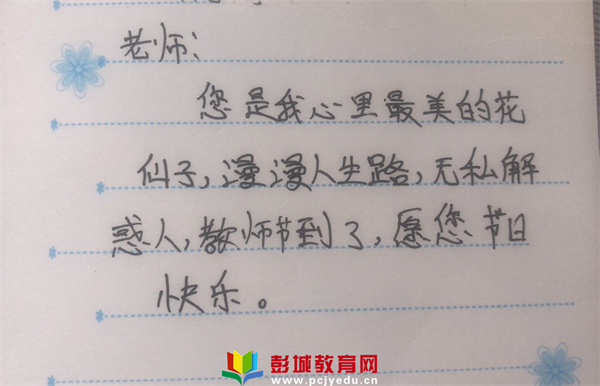 老师：
您是我心里最美的花
仙子，漫漫人生路，无私解
惑人，教师节到了，愿您节日
快乐。
彭城教育网
www.pcjyedu.cn